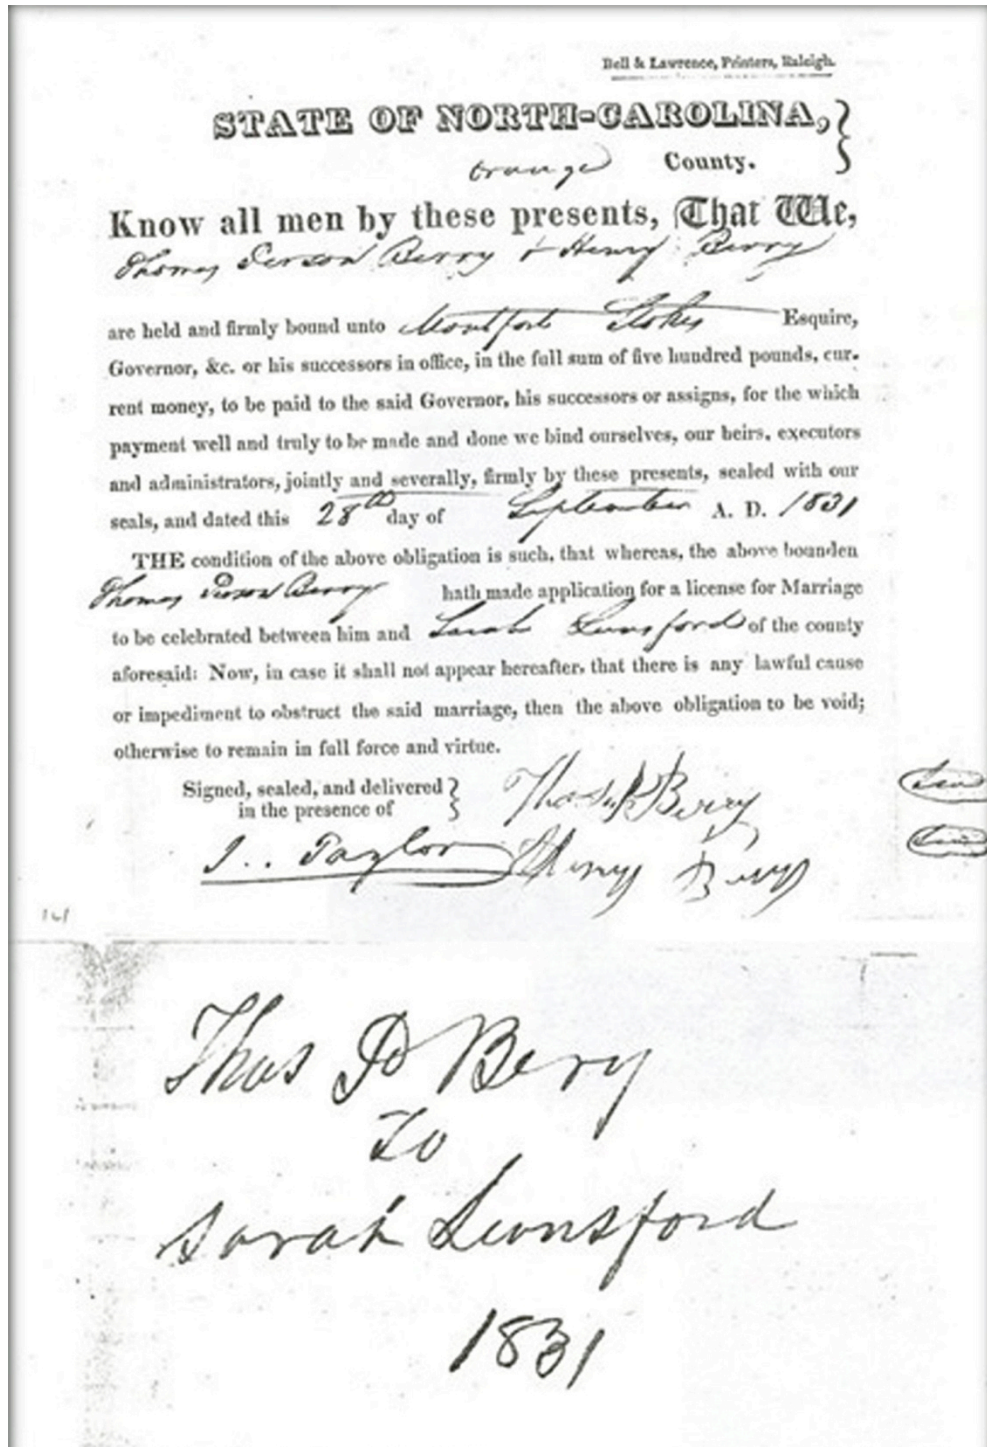 Bell & Lawrence, Printers, Raleigh.
STATE OF NORTH-CAROLINA,
Orange County.
Know all men by these presents, That We,
Thomas Person Berry & Henry Berry
are held and firmly bound unto Montfort Stokes Esquire,
Governor, &c. or his successors in office, in the full sum of five hundred pounds, cur-
rent money, to be paid to the said Governor, his successors or assigns, for the which
payment well and truly to be made and done we bind ourselves, our heirs, executors
and administrators, jointly and severally, firmly by these presents, sealed with our
seals, and dated this 28th day of September A. D. 1831
THE condition of the above obligation is such, that whereas, the above bounden
Thomas Person Berry hath made application for a license for Marriage
to be celebrated between him and Sarah Lunsford of the county
aforesaid: Now, in case it shall not appear hereafter, that there is any lawful cause
or impediment to obstruct the said marriage, then the above obligation to be void;
otherwise to remain in full force and virtue.
Signed, sealed, and delivered
in the presence of
Thos P Berry
J.. Taylor Henry Berry
161
Thos P Bery
To
Sarah Lunsford
1831